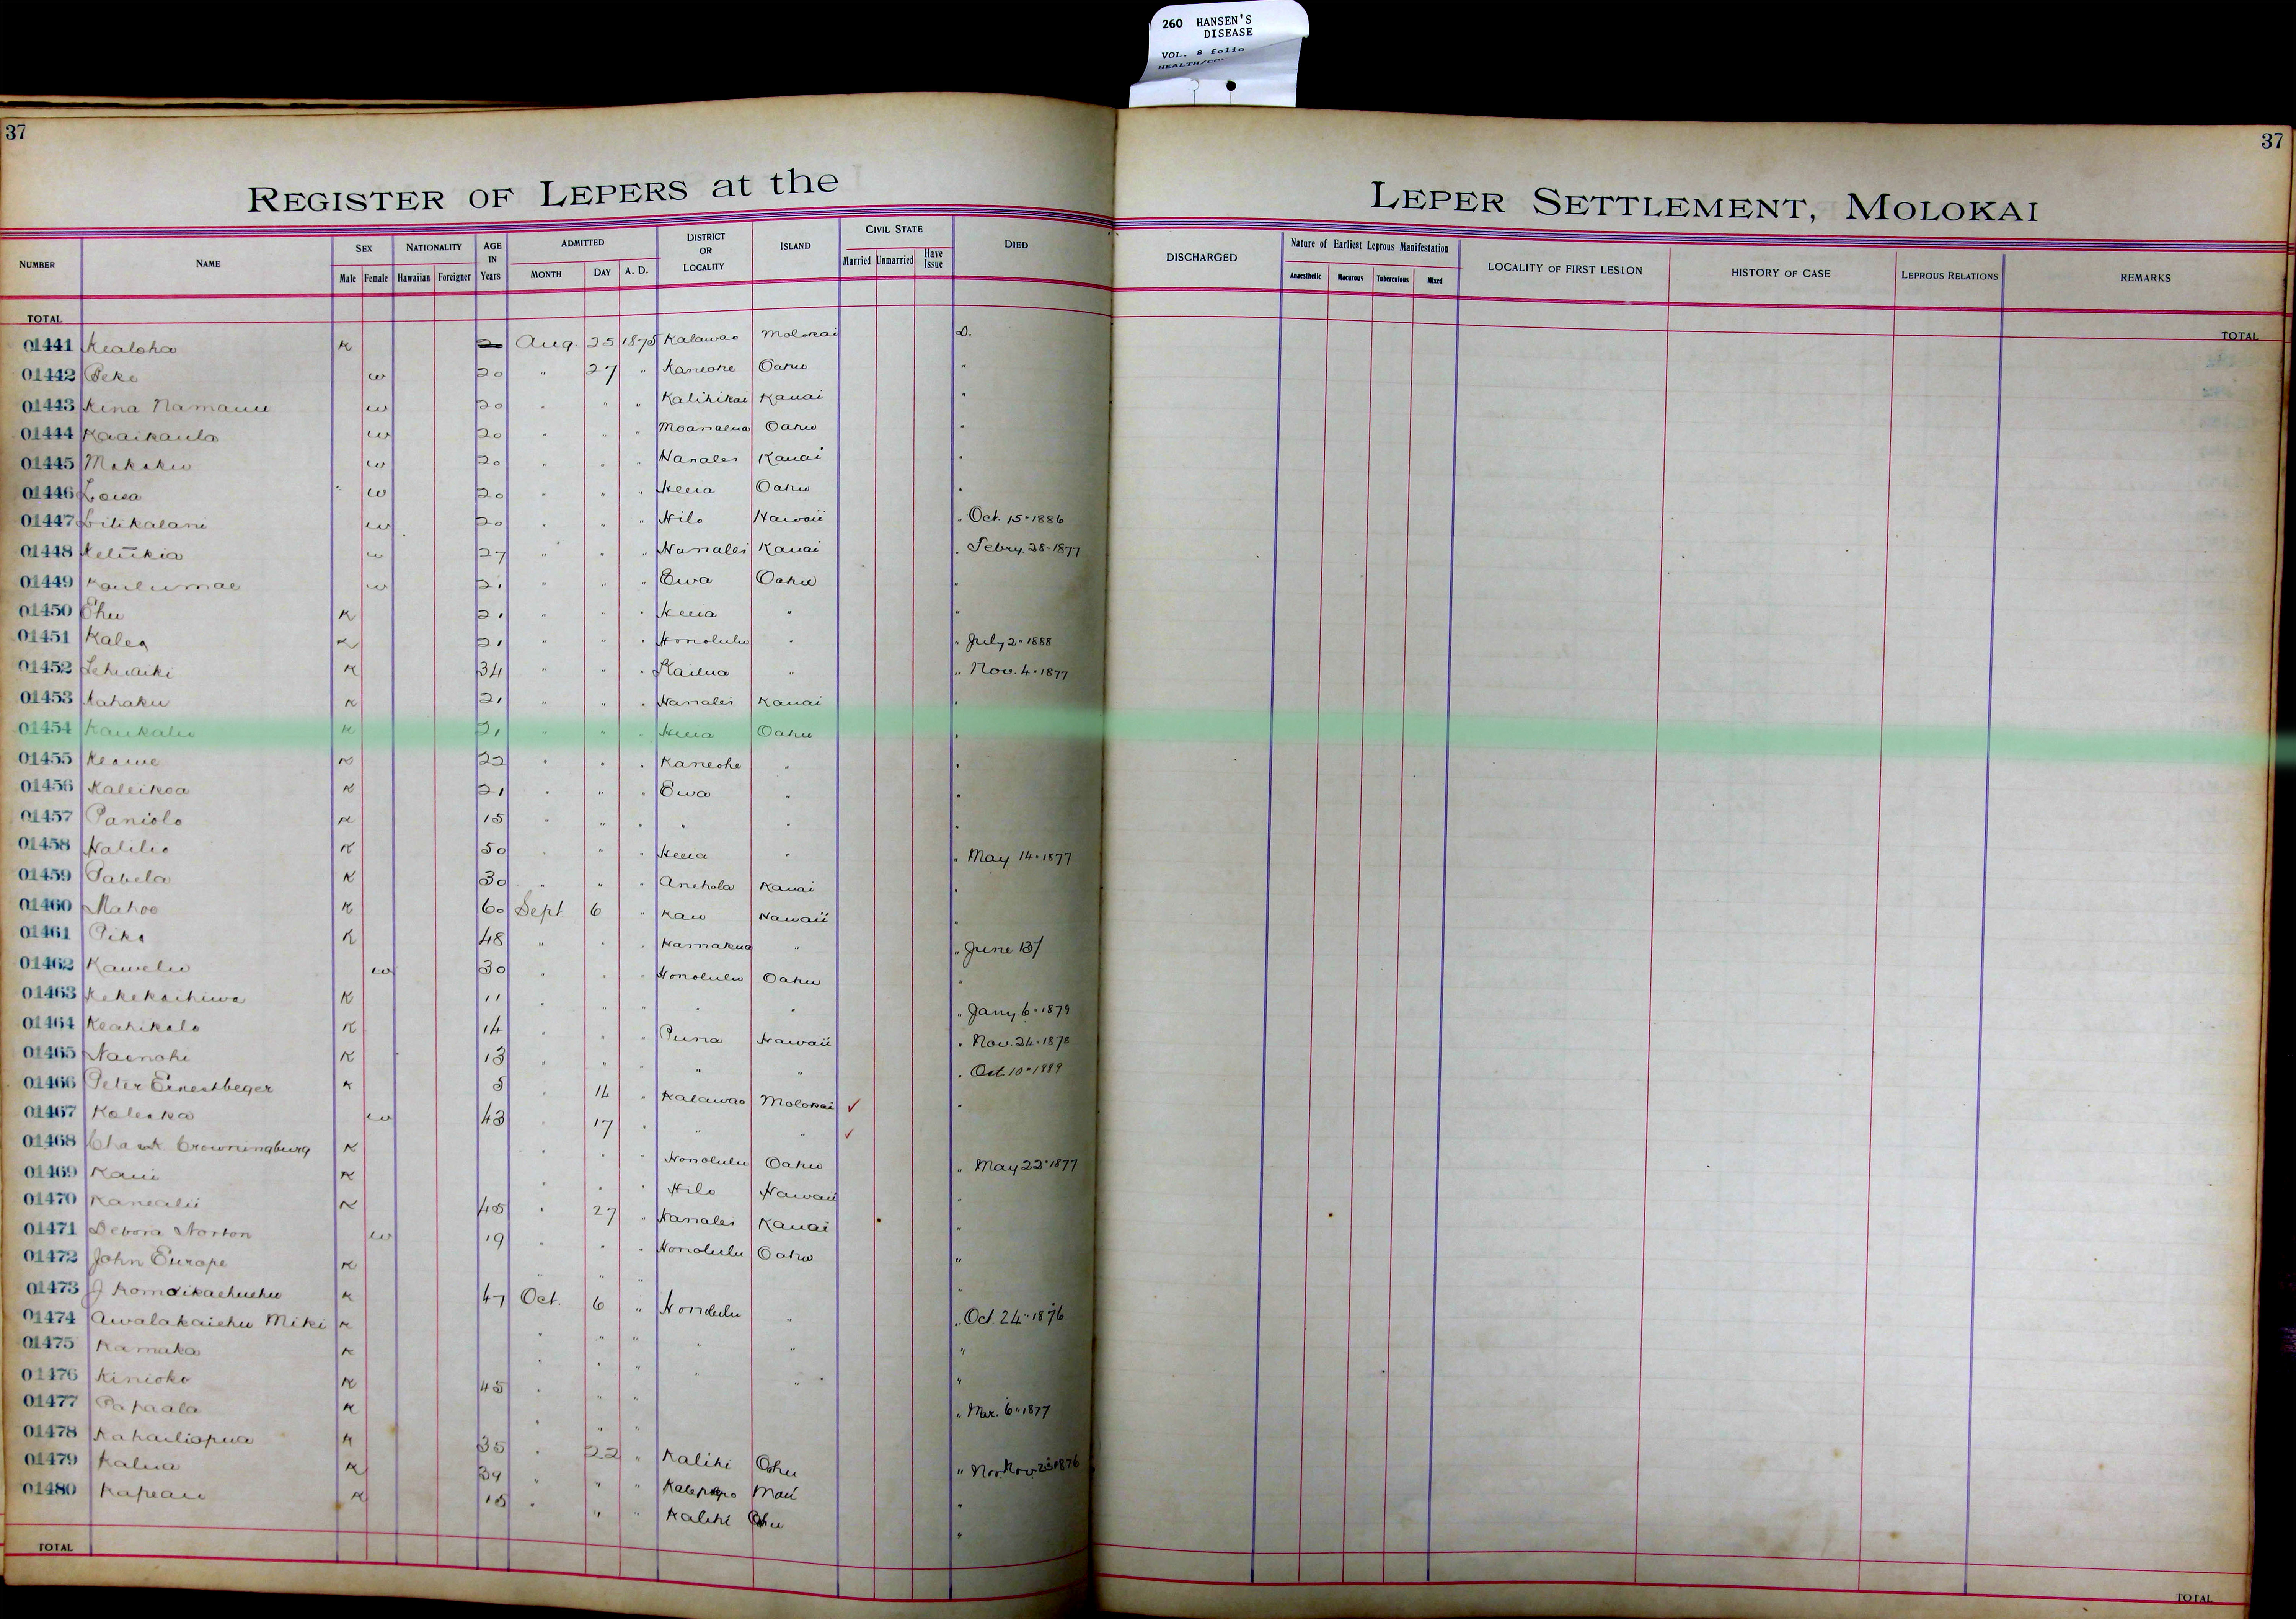 260 HANSEN'S
DISEASE
VOL. 8 folio
37
37
REGISTER OF LEPERS at the
LEPER SETTLEMENT, MOLOKAI
NUMBER NAME SEX Male Female NATIONALITY Hawaiian Foreigner AGE IN Years ADMITTED MONTH DAY A. D. DISTRICT OR LOCALITY ISLAND CIVIL STATE Married Unmarried Have Issue DIED DISCHARGED Nature of Earliest Leprous Manifestation Anaesthetic Macurous Tuberculous Mixed LOCALITY OF FIRST LESION HISTORY OF CASE LEPROUS RELATIONS REMARKS
TOTAL
TOTAL
01441 Kealoha K 20 Aug. 25 1875 Kalawao Molokai D.
01442 Peke w 20 " 27 " Kaneohe Oahu "
01443 Kina Namauu w 20 " " " Kalihikai Kauai "
01444 Kaaikaula w 20 " " " Moanalua Oahu "
01445 Mokoku w 20 " " " Hanalei Kauai "
01446 Loisa w 20 " " " Heeia Oahu "
01447 Lilikalani w 20 " " " Hilo Hawaii " Oct. 15-1886
01448 Keliikia w 27 " " " Hanalei Kauai " Febry. 28-1877
01449 Kaulumae w 21 " " " Ewa Oahu "
01450 Ehu K 21 " " " Heeia " "
01451 Kalea K 21 " " " Honolulu " " July 2-1888
01452 Lehuaiki K 34 " " " Kailua " " Nov. 4-1877
01453 Kahaku K 21 " " " Hanalei Kauai "
01454 Kaukaliu K 21 " " " Heeia Oahu "
01455 Keawe K 22 " " " Kaneohe " "
01456 Kaleikoa K 21 " " " Ewa " "
01457 Paniolo K 15 " " " " " "
01458 Halilio K 50 " " " Heeia " " May 14-1877
01459 Pabela K 30 " " " Anehola Kauai "
01460 Mahoe K 60 Sept 6 " Kau Hawaii "
01461 Pika K 48 " " " Hamakua " " June 137
01462 Kawelu w 30 " " " Honolulu Oahu "
01463 Kekekachiwa K 11 " " " " " " Jany. 6-1879
01464 Keahikolo K 14 " " " Puna Hawaii " Nov. 24-1878
01465 Nainohi K 13 " " " " " " Oct 10-1889
01466 Peter Ernestbeger K 5 " 14 " Kalawao Molokai ✓ "
01467 Kaleka w 43 " 17 " " " ✓
01468 Crowningburg K " " " Honolulu Oahu " May 22-1877
01469 Kaui K " " " Hilo Hawaii "
01470 Kanealii K 45 " 27 " Hanalei Kauai "
01471 Debora Norton w 19 " " " Honolulu Oahu "
01472 John Europe K " " " "
01473 J Komoikaehuehu K 47 Oct. 6 " Honolulu " " Oct. 24-1876
01474 Awalakaiehu Miki K " " " " " "
01475 Kamaka K " " " " " "
01476 Kinioko K 45 " " " Mar. 6-1877
01477 Papaala K " " "
01478 Kahailiopua K 35 " 22 " Kalihi Oahu " Nov. 23 1876
01479 Kalua K 39 " " " Kalepolepo Maui "
01480 Kapeau K 15 " " " Kalihi Oahu "
TOTAL
TOTAL